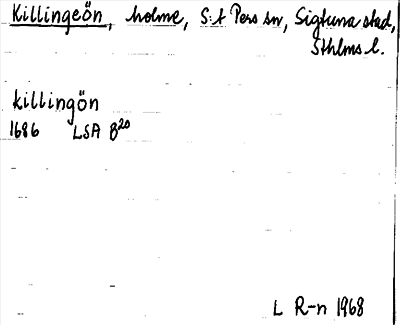 Killingeön, holme, S:t Pers sn, Sigtuna stad,
Sthlms l.
killingön
1686 LSA B²⁰
L R-n 1968